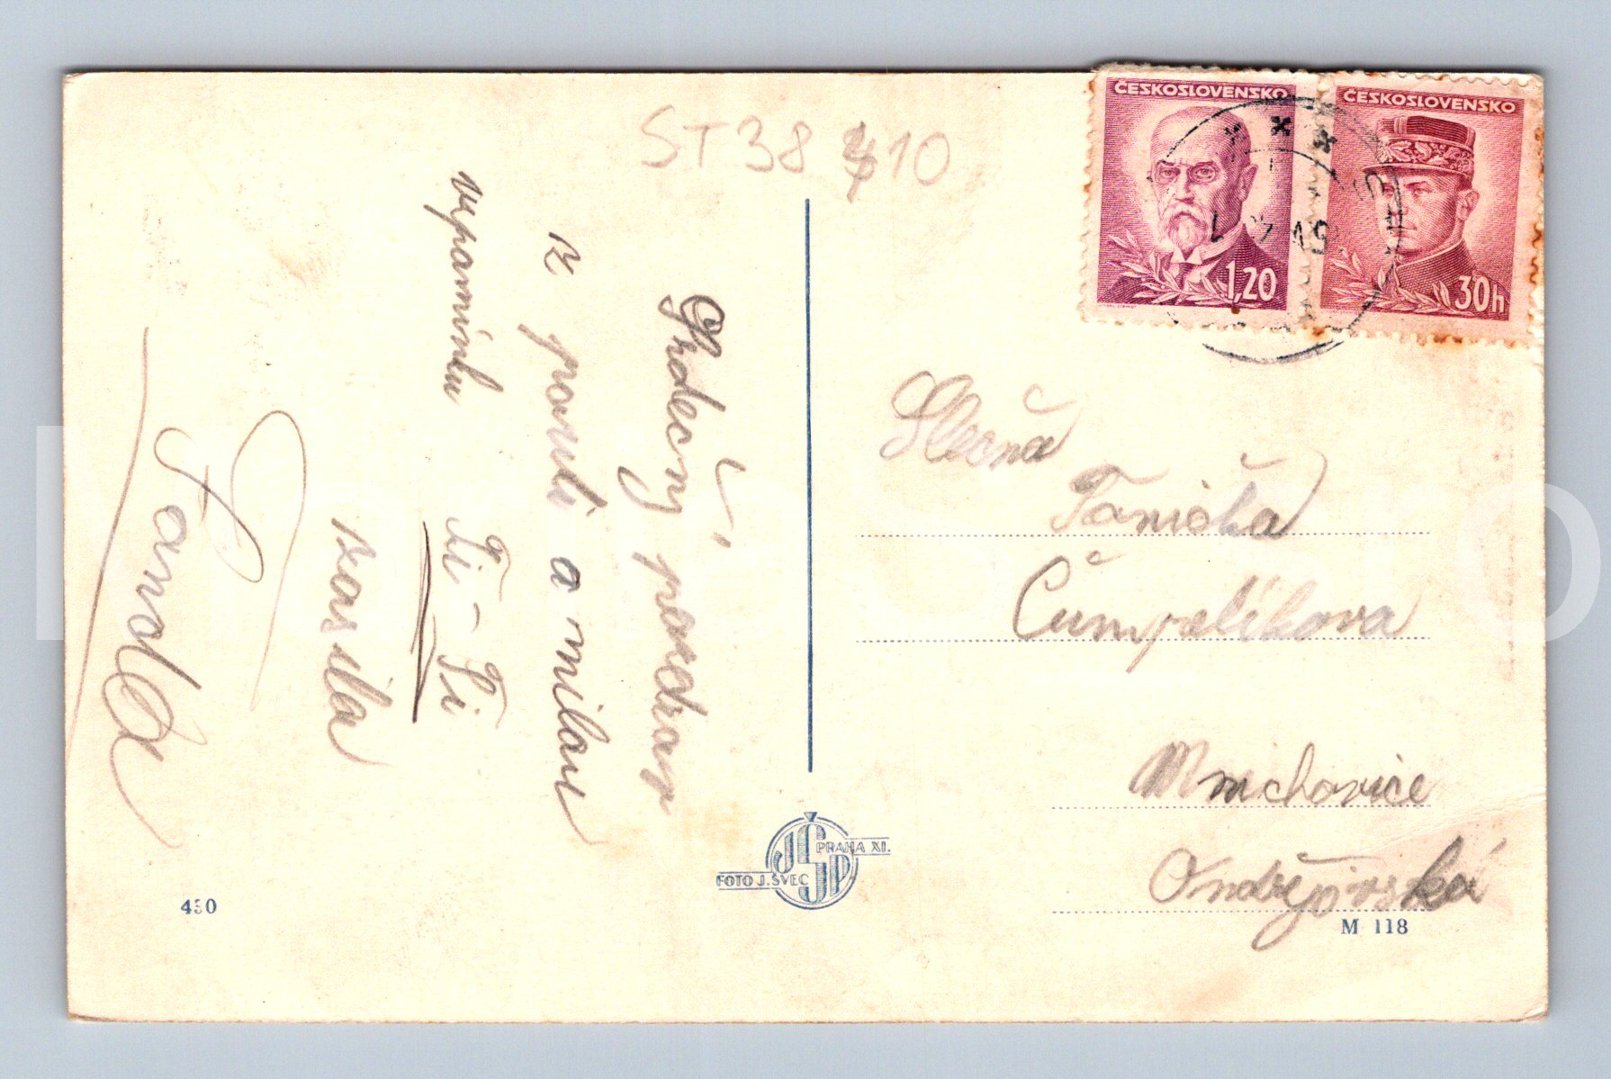 ST38 410
ČESKOSLOVENSKO
1,20
ČESKOSLOVENSKO
30h
Srdečný pozdrav
z pouti a milou
vzpomínku Ti-Ti
zasílá
Slečna
Tanička
Čumpelíkova
Mnichovice
Ondřejovská
FOTO J. ŠVEC
PRAHA XI.
JŠP
430
M 118